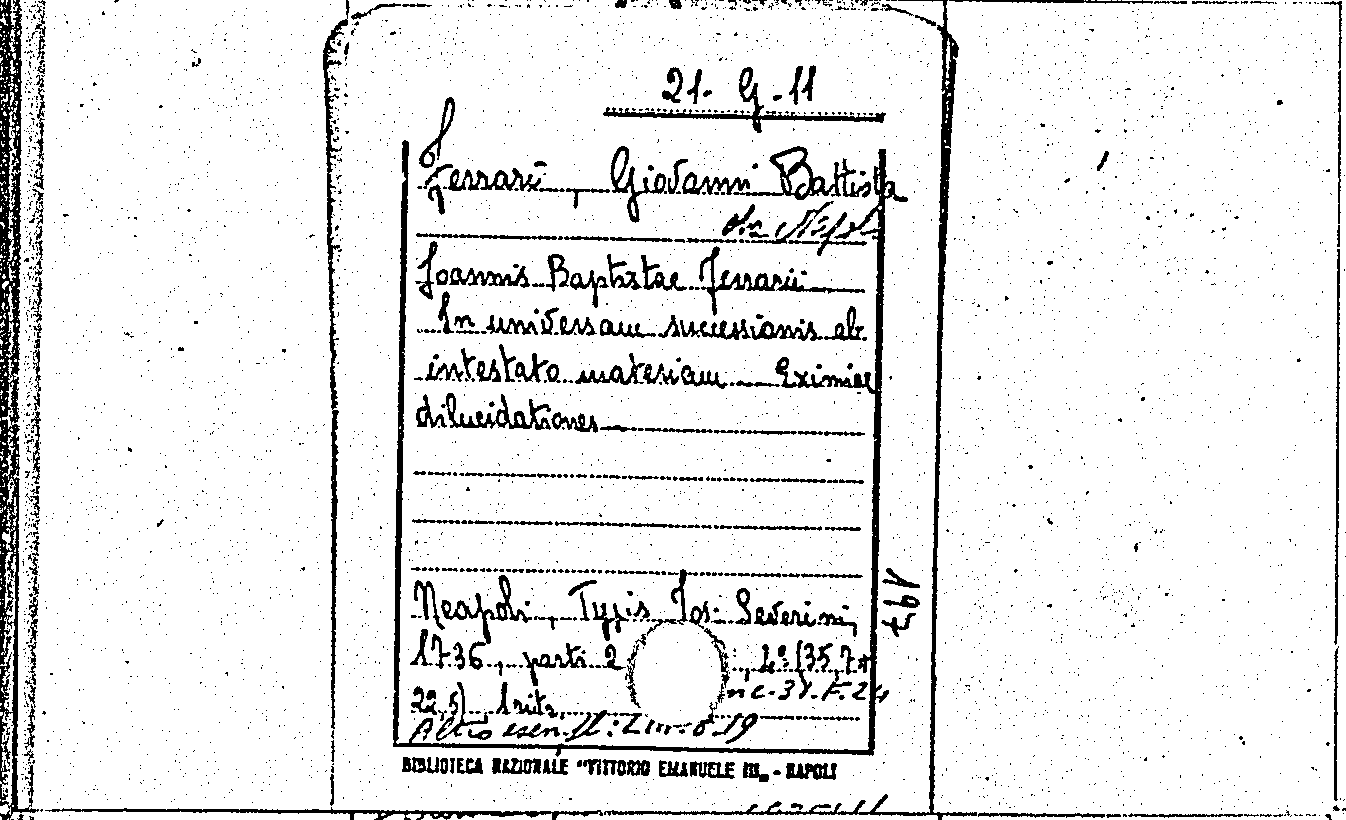 21. G. 11
Ferrari, Giovanni Battista
da Napoli
Joannis Baptistae Ferrarii
In universam successionis ab
intestato materiam Eximiae
dilucidationes
Neapoli, Typis Jos. Severini,
1736, parti 2
22,5)
Altro esem.
BIBLIOTECA NAZIONALE "VITTORIO EMANUELE III„ - NAPOLI